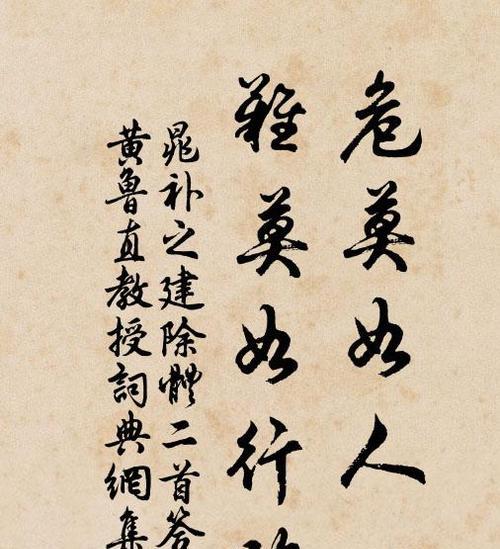 危莫如人
難莫如行
晁补之建除體二首答
黄魯直教授詞典網集